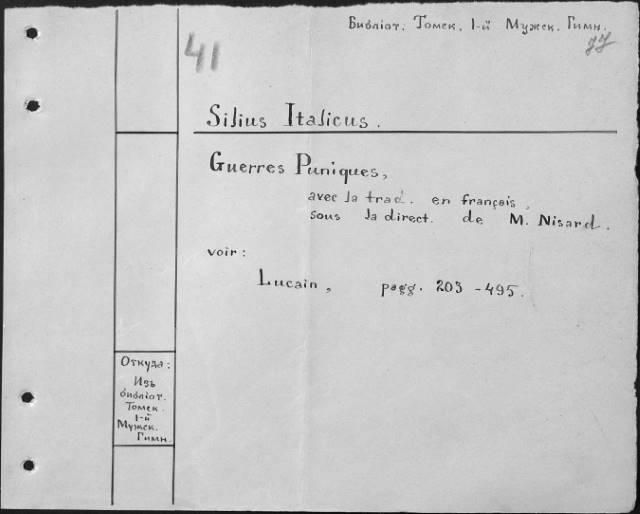 Библіот. Томск. 1-й Мужск. Гимн.
41
Silius Italicus.
Guerres Puniques,
avec la trad. en français,
sous la direct. de M. Nisard.
voir:
Lucain, pagg. 203-495.
Откуда:
Изъ
библіот.
Томск.
1-й
Мужск.
Гимн.